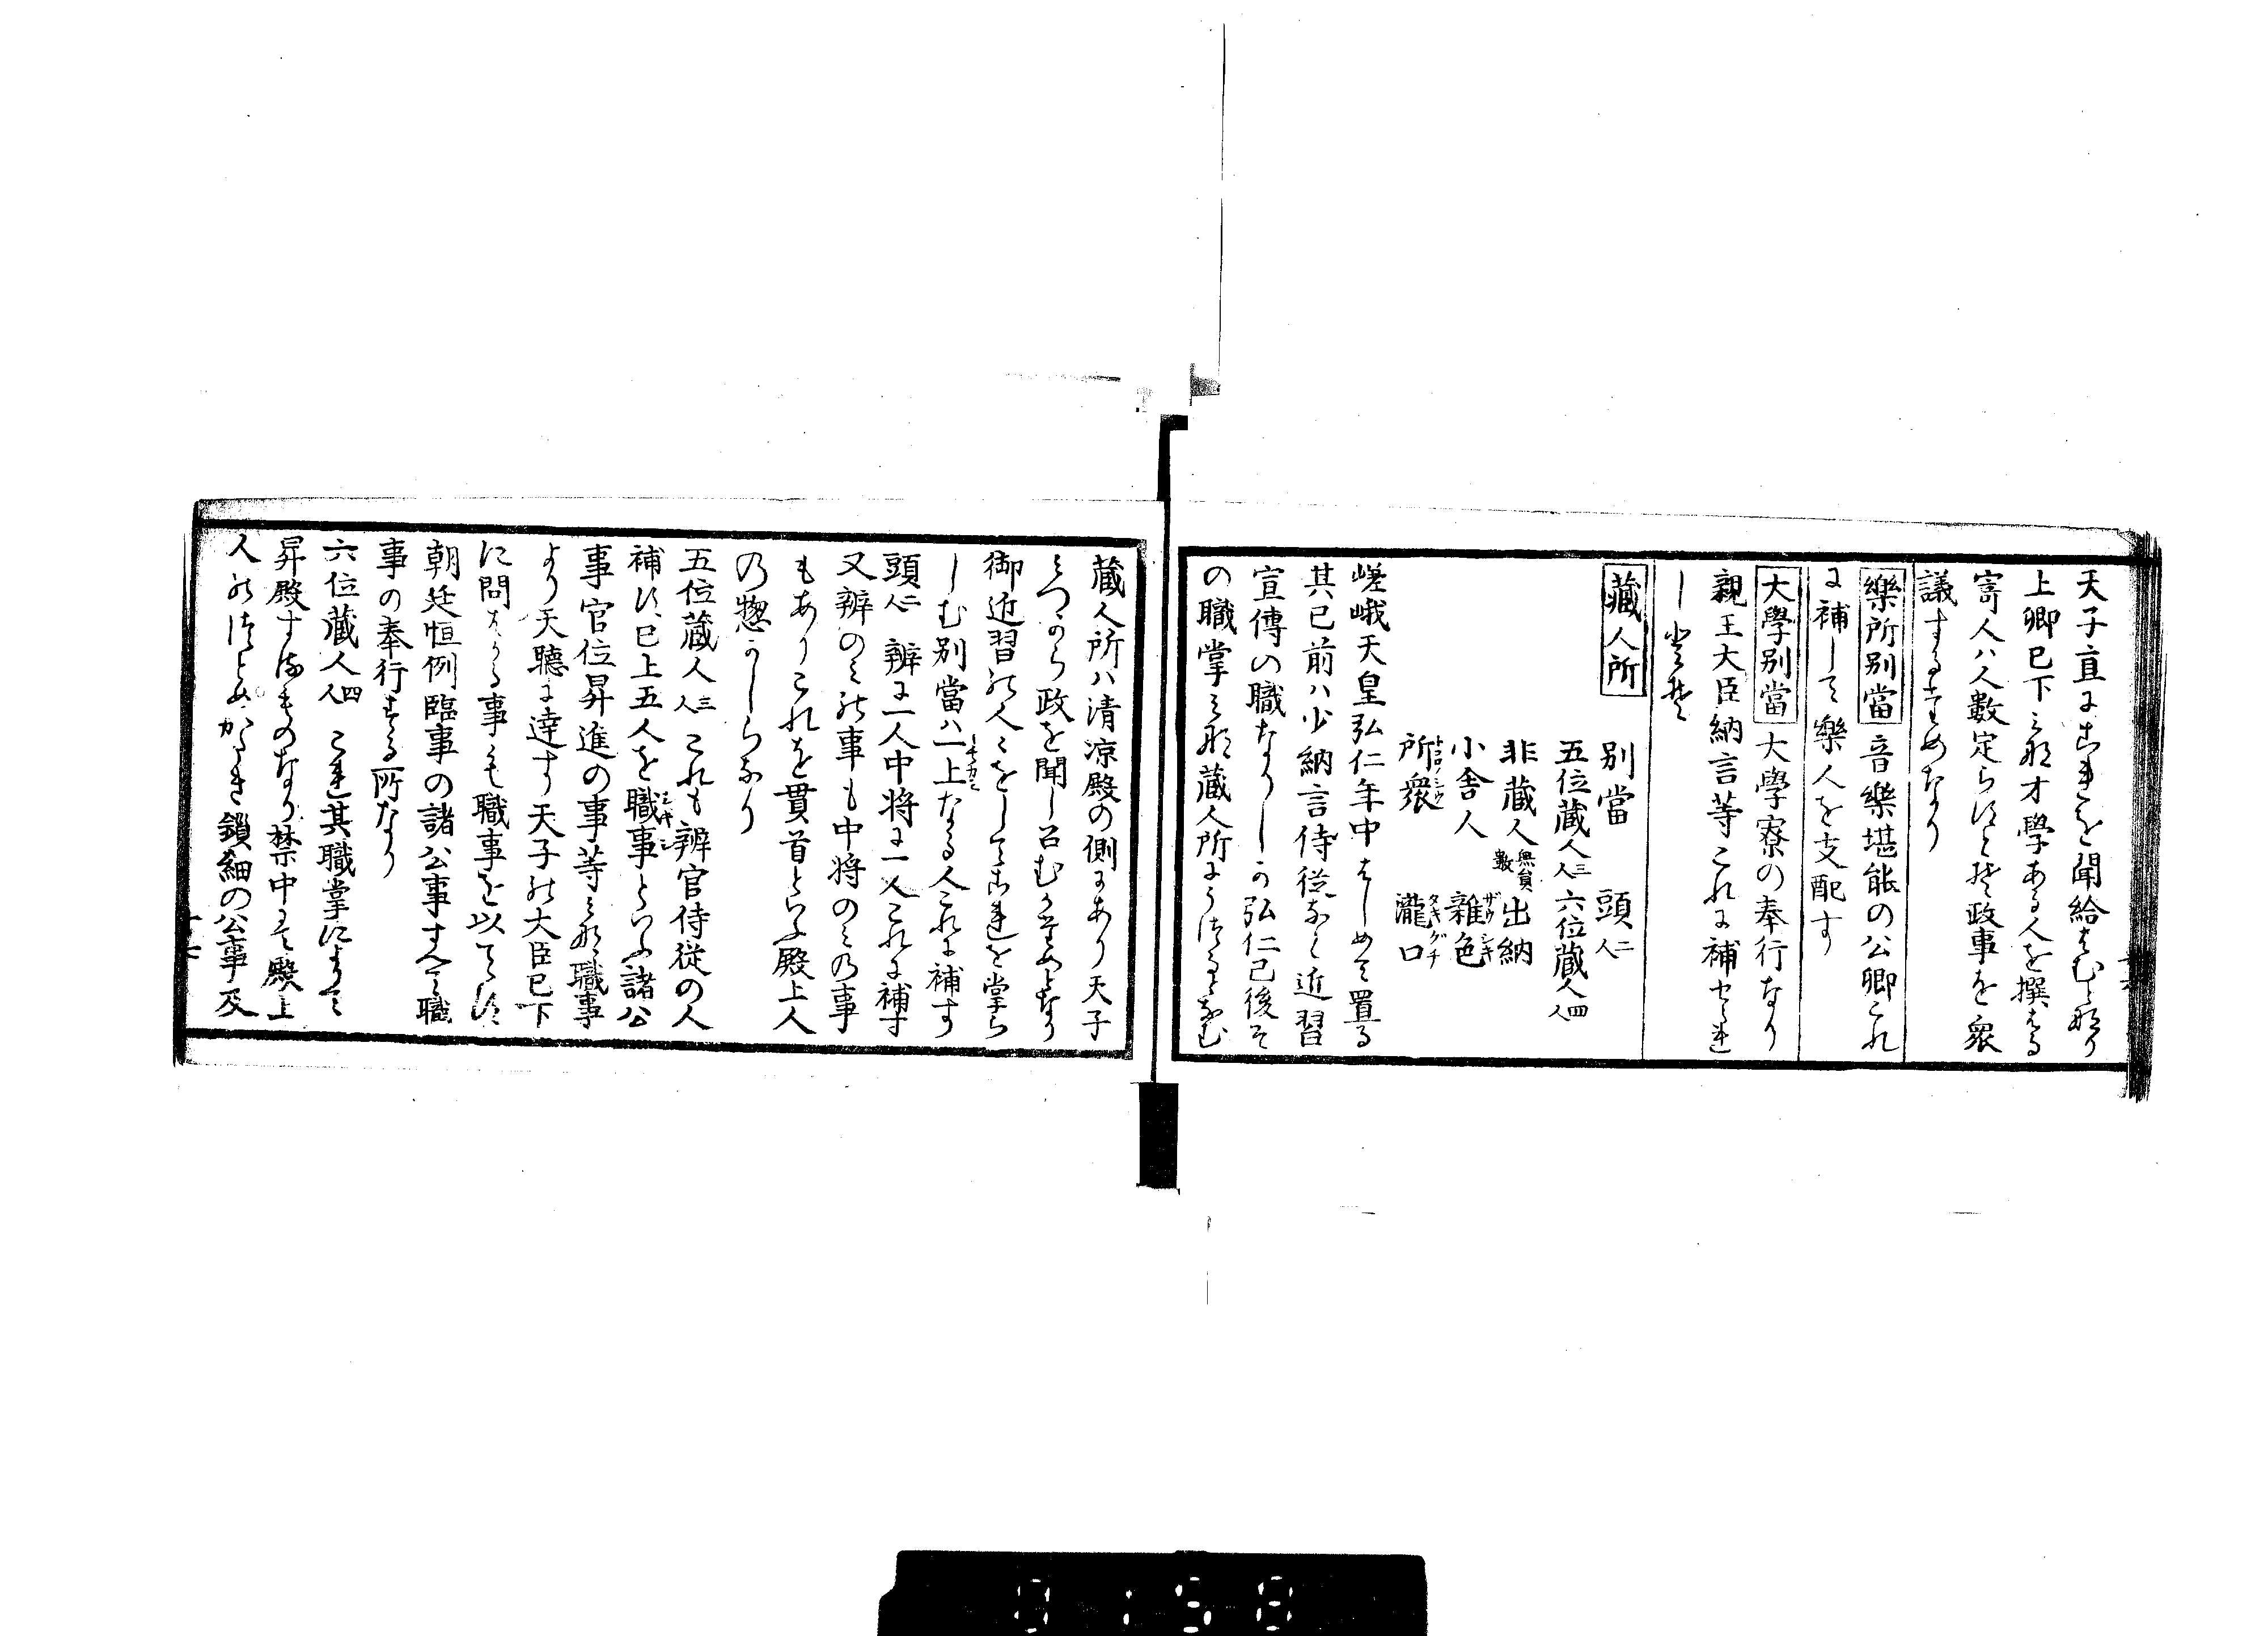 天子直にこれを聞給はむとなり
上卿已下みな才學ある人を撰はる
寄人ハ人數定らすして政事を衆
議するためなり
樂所別當 音樂堪能の公卿これ
に補して樂人を支配す
大學別當 大學寮の奉行なり
親王大臣納言等これに補せられ
し
藏人所 別當 頭二人
五位藏人三人 六位藏人四人
非藏人無員數 出納
小舎人 雜色ザウシキ
所衆トコロノシウ 瀧口タキグチ
嵯峨天皇弘仁年中はしめて置る
其已前ハ少納言侍從なと近習
宣傳の職なりしか弘仁已後そ
の職掌みな藏人所にうつるなむ
藏人所ハ清凉殿の側にあり天子
みつから政を聞し召むかためなり
御近習の人々をしてこれを掌ら
しむ別當ハ一上なる人これに補す
頭二人 辨に一人中将に一人これに補す
又辨のみの事も中将のみの事
もありこれを貫首といふ殿上人
の惣かしらなり
五位藏人三人 これも辨官侍従の人
補す已上五人を職事シキジといふ諸公
事官位昇進の事等みな職事
より天聽に達す天子の大臣已下
に問はるゝ事も職事を以てす
朝廷恒例臨事の諸公事すへて職
事の奉行する所なり
六位藏人四人 これ其職掌によりて
昇殿するものなり禁中にて殿上
人のつとめかたき鎖細の公事及